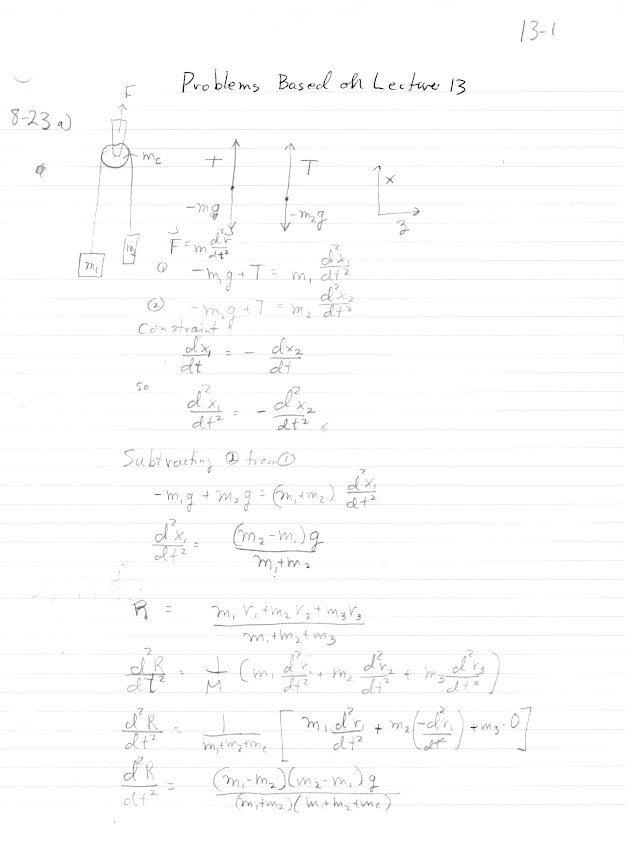 13-1
Problems Based on Lecture 13
8-23 a)
F
m_c
T T x
-m_1g -m_2g z
m_1 m_2
F⃗ = m d²r⃗/dt²
① -m_1g + T = m_1 d²x_1/dt²
② -m_2g + T = m_2 d²x_2/dt²
Constraint
dx_1/dt = - dx_2/dt
so
d²x_1/dt² = - d²x_2/dt²
Subtracting ② from ①
-m_1g + m_2g = (m_1+m_2) d²x_1/dt²
d²x_1/dt² = (m_2-m_1)g / m_1+m_2
R = m_1r_1+m_2r_2+m_3r_3 / m_1+m_2+m_3
d²R/dt² = 1/M (m_1 d²r_1/dt² + m_2 d²r_2/dt² + m_3 d²r_3/dt²)
d²R/dt² = 1/m_1+m_2+m_c [m_1 d²r_1/dt² + m_2(-d²r_1/dt²) + m_3·0]
d²R/dt² = (m_1-m_2)(m_2-m_1)g / (m_1+m_2)(m_1+m_2+m_c)